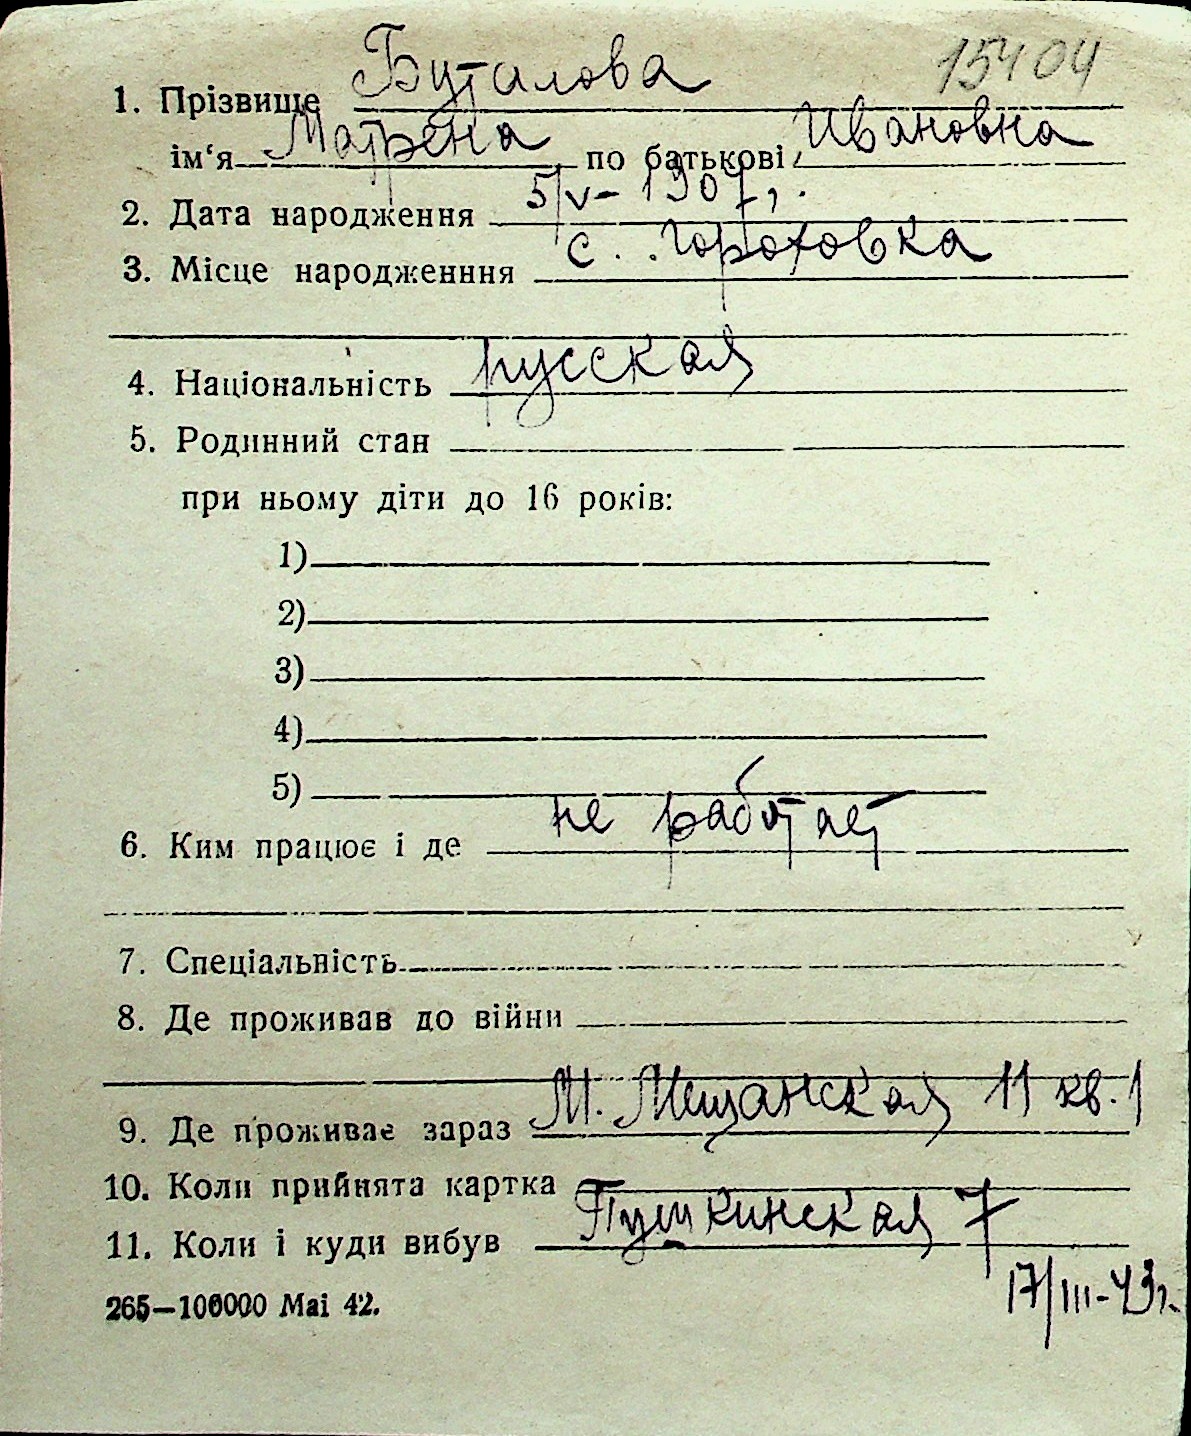 15404
1. Прізвище Буталова
ім‘я Матрена по батькові Ивановна
2. Дата народження 5/V - 1907 г.
3. Місце народженння с. Гороховка
4. Національність русская
5. Родинний стан
при ньому діти до 16 років:
1)
2)
3)
4)
5)
6. Ким працює і де не работает
7. Спеціальність
8. Де проживав до війни
9. Де проживає зараз М. Мещанская 11 кв. 1
10. Коли прийнята картка
11. Коли і куди вибув Пушкинская 7
17/III-43г.
265—100000 Mai 42.